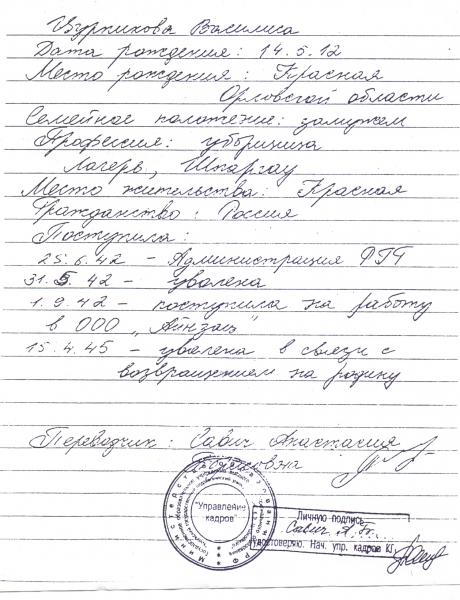 Цурпикова Василиса
Дата рождения: 14.5.12
Место рождения: Красная
Орловской области
Семейное положение: замужем
Профессия: уборщица
Лагерь, Шпаргау
Место жительства: Красная
Гражданство: Россия
Поступила:
25.6.42 - Администрация
31. 42 - уволена
1.9.42 - поступила на работу
в ООО „Айнзац"
15.4.45 - уволена в связи с
возвращением на родину
Переводчик: Савич Анастасия
"Управление
кадров"
Личную подпись
Савич А.
Удостоверяю. Нач. упр. кадров